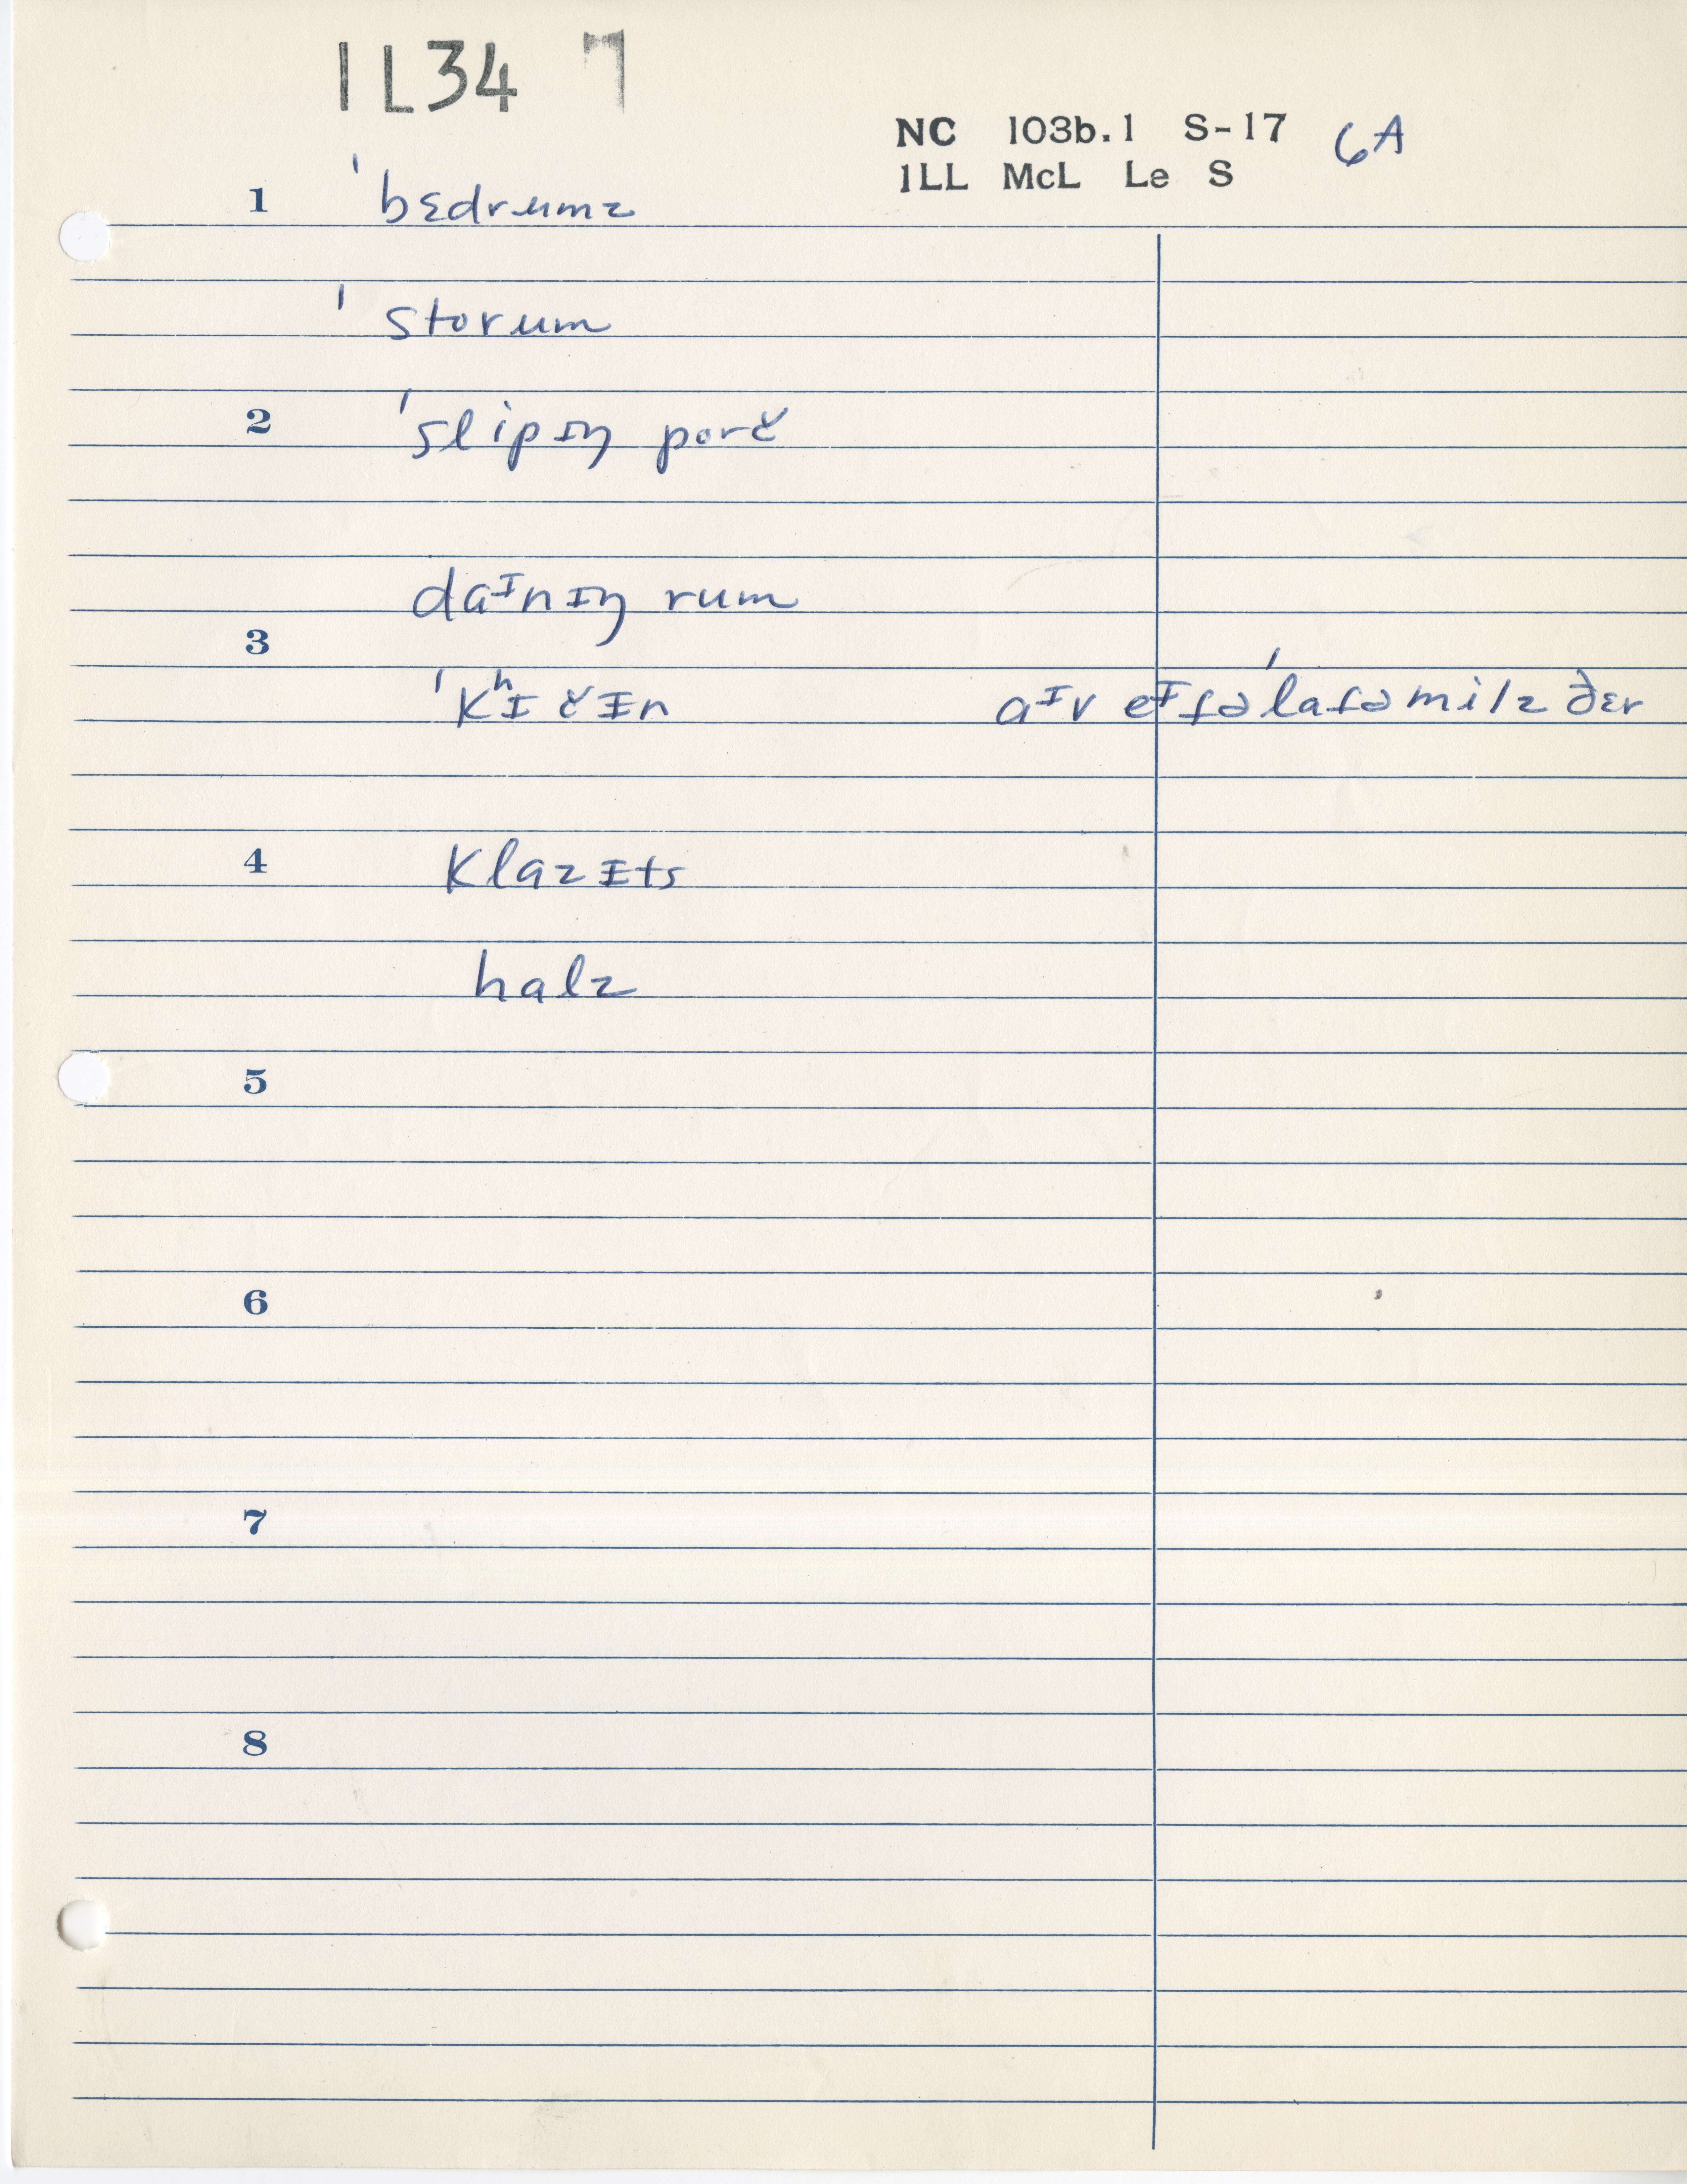 1L34 7
NC 103b.1 S-17 6A
1LL McL Le S
1 ˈbɛdrumz
ˈstorum
2 ˈslipɪŋ porč
daᶦnɪŋ rum
3
ˈkʰɪčɪn aᶦv eᶦtəˈlatəmilz ðɛr
4 klazɪts
halz
5
6
7
8